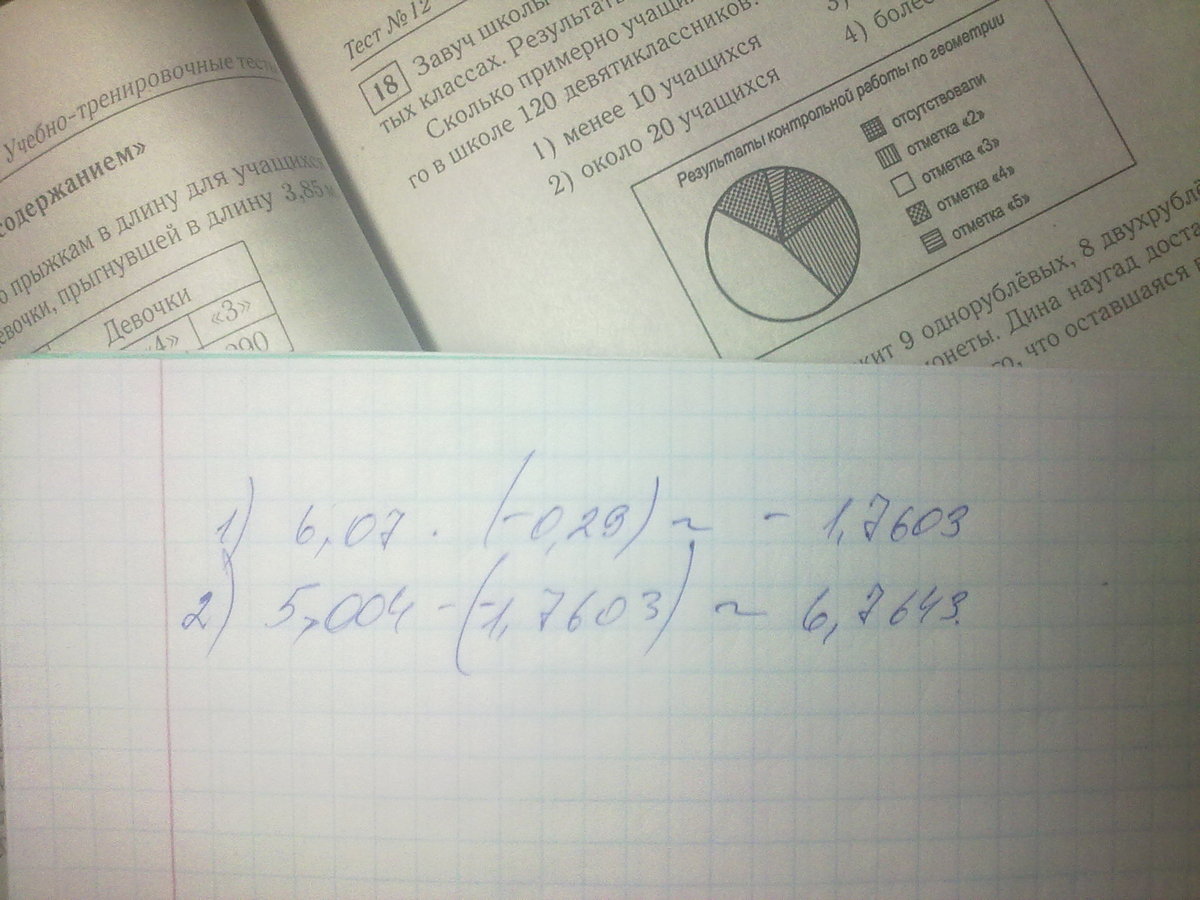 Учебно-тренировочные тесты
содержанием»
о прыжкам в длину для учащихся
девочки, прыгнувшей в длину 3,85 м
Девочки
«4» «3»
Тест №12
18 Завуч школы
тых классах. Результаты
Сколько примерно учащи
го в школе 120 девятиклассников.
1) менее 10 учащихся
2) около 20 учащихся
3)
4) более
Результаты контрольной работы по геометрии
отсутствовали
отметка «2»
отметка «3»
отметка «4»
отметка «5»
жит 9 однорублёвых, 8 двухрублё
монеты. Дина наугад доста
го, что оставшаяся
1) 6,07 · (-0,29) ~ - 1,7603
2) 5,004 - (-1,7603) ~ 6,7643.